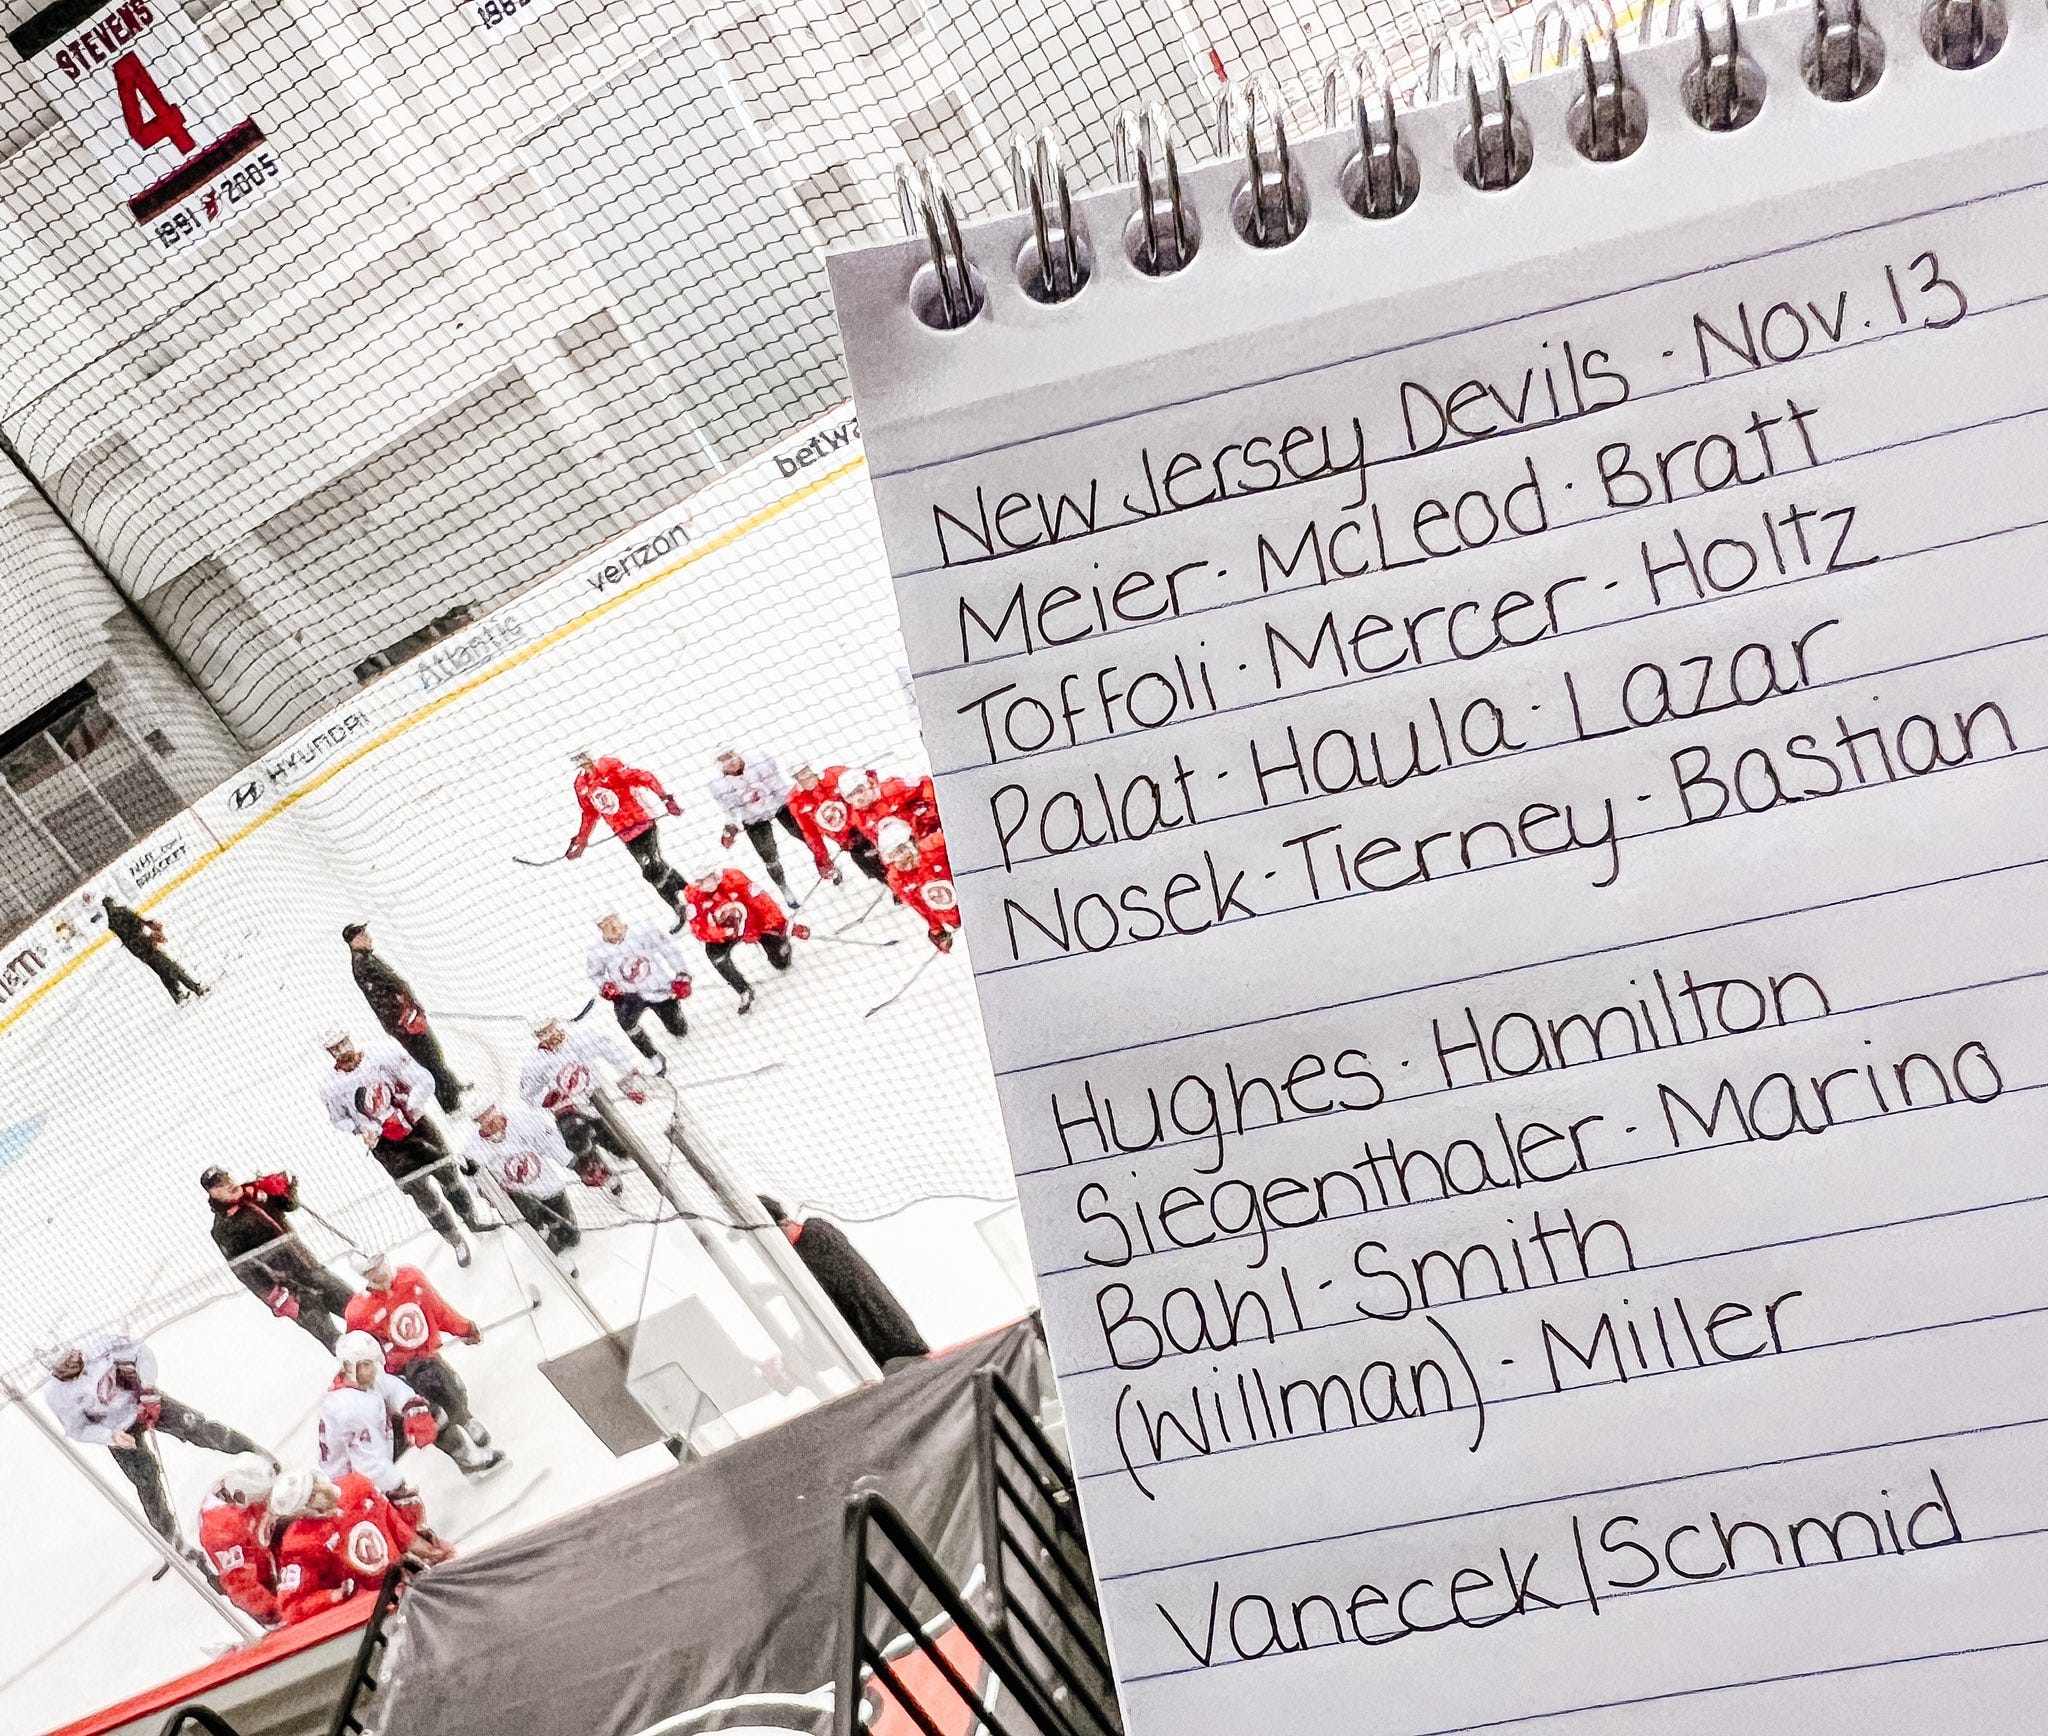 STEVENS
4
1991 2005
1982
betwa
verizon
Atlantic
HYUNDAI
New Jersey Devils · Nov. 13
Meier · McLeod · Bratt
Toffoli · Mercer · Holtz
Palat · Haula · Lazar
Nosek · Tierney · Bastian
Hughes · Hamilton
Siegenthaler · Marino
Bahl · Smith
(Willman) · Miller
Vanecek/Schmid